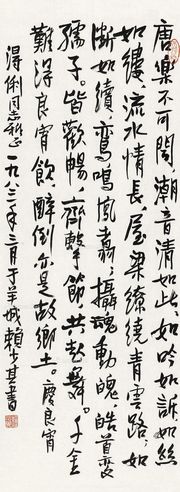 唐樂不可聞，潮音清如此，如吟如訴，如絲
如縷，流水情長，屋梁繚繞青雲路，如
斷如續，鸞鳴鳳翥，攝魂動魄，皓首變
孺子。皆歡暢，齊擊節，共起舞。千金
難得良宵飲，醉倒亦是故鄉土。慶良宵
得俐同志雅正 一九八二年三月于羊城賴少其書